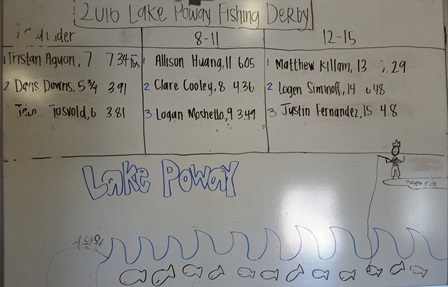 2016 Lake Poway Fishing Derby
8-11
12-15
1 Tristan Aguon, 7 7.34 lbs
2 Downs, 5 3/4 3.91
6 3.81
1 Allison Huang, 11 6.05
2 Clare Cooley, 8 4.36
3 Logan Moshello, 9 3.49
1 Matthew Killam, 13
2 Logen Siminoff, 14
3 Justin Fernandez, 15 4.8
Lake Poway